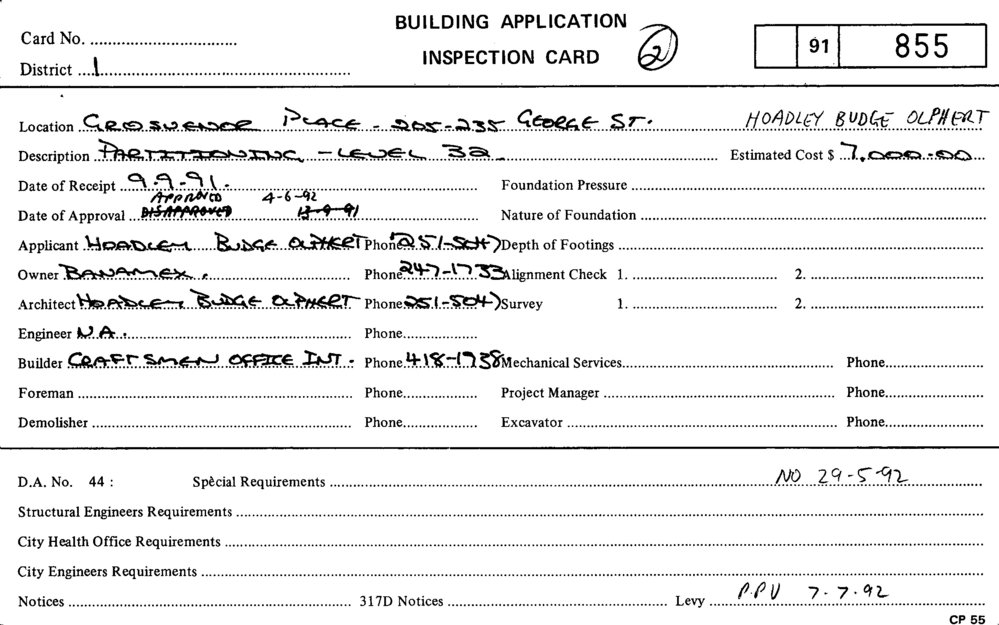 BUILDING APPLICATION
INSPECTION CARD
Card No.
2
91 855
District 1
Location GROSVENOR PLACE - 205-235 GEORGE ST. HOADLEY BUDGE OLPHERT
Description PARTITIONING - LEVEL 32 Estimated Cost $ 7,000-00
Date of Receipt 9.9.91. Foundation Pressure
APPROVED 4-6-92
Date of Approval DISAPPROVED 13-9-91 Nature of Foundation
Applicant HOADLEY BUDGE OLPHERT Phone 251-5047 Depth of Footings
Owner BANAMEX. Phone 247-1733 Alignment Check 1. 2.
Architect HOADLEY BUDGE OLPHERT Phone 251-5047 Survey 1. 2.
Engineer N.A. Phone
Builder CRAFTSMEN OFFICE INT. Phone 418-1938 Mechanical Services Phone
Foreman Phone Project Manager Phone
Demolisher Phone Excavator Phone
D.A. No. 44 : Spècial Requirements NO 29-5-92
Structural Engineers Requirements
City Health Office Requirements
City Engineers Requirements
Notices 317D Notices Levy P.P.V 7.7.92
CP 55